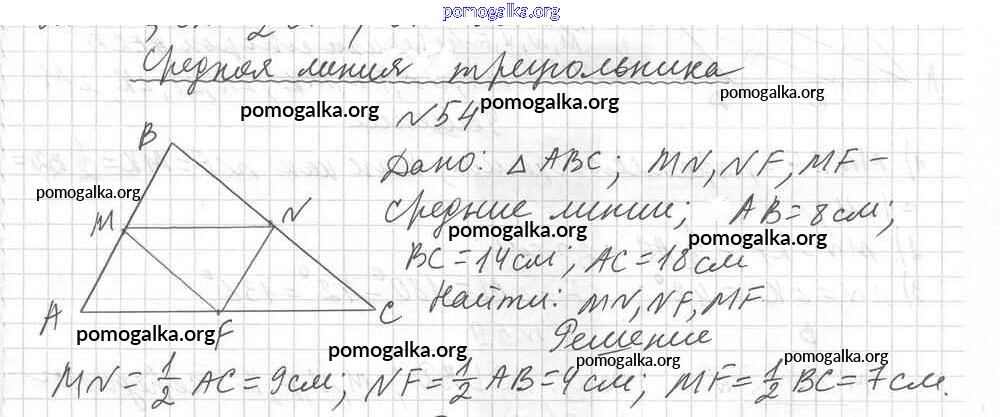 pomogalka.org
Средная линия треугольника
pomogalka.org pomogalka.org pomogalka.org
№54
B
Дано: △ ABC; MN, NF; MF –
pomogalka.org
M N
средние линии; AB = 8 см;
pomogalka.org pomogalka.org
BC = 14 см; AC = 18 см
A F C
Найти: MN, NF, MF
pomogalka.org
Решение
pomogalka.org pomogalka.org pomogalka.org
MN = 1/2 AC = 9 см; NF = 1/2 AB = 4 см; MF = 1/2 BC = 7 см.